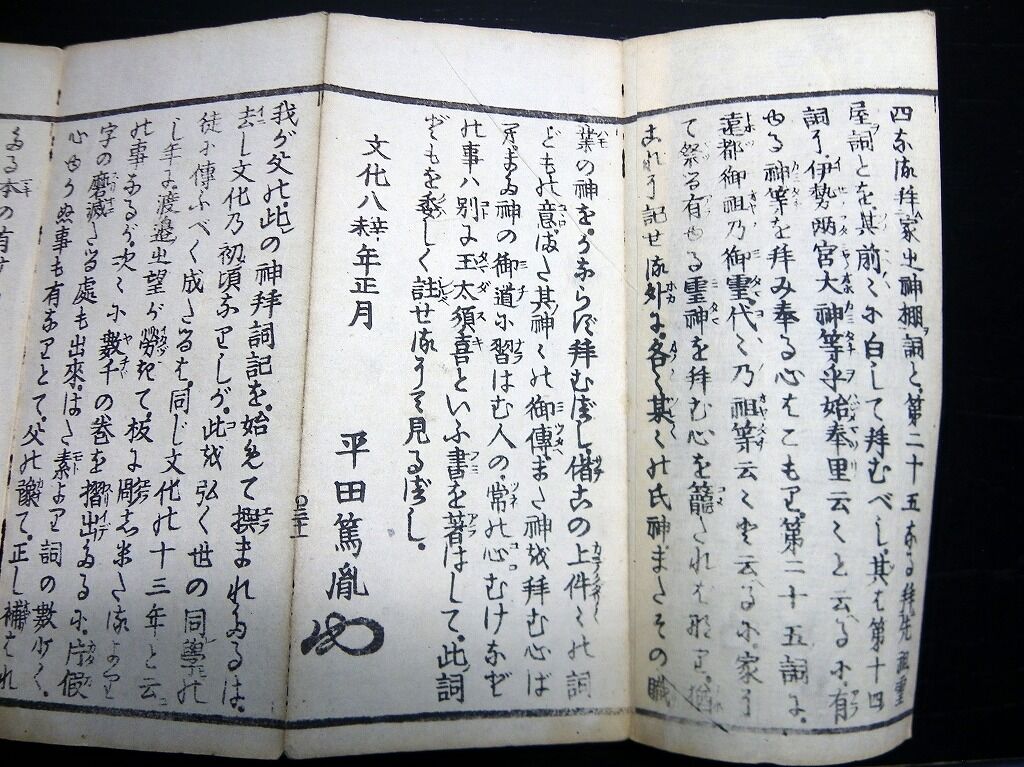 四なる拜家之神棚詞と、第二十五なる拜先祖靈
屋詞とを、其前々に白して拜むべし、其は第十四
詞に、伊勢兩宮大神等乎始奉里云々と云るに、有
ゆる神等を拜み奉る心をこもり、第二十五詞に、
遠都御祖乃御靈、代々乃祖等云々と云るに、家に
て祭る有ゆる靈神を拜む心を籠たればなり、猶
これに記せる外に、各々某々の氏神、またその職
業の神を、かならず拜むべし、偖この上件々の詞
どもの意、また其神々の御傳、また神を拜む心ば
へ、また神の御道に習はむ人の、常の心むけなど
の事は、別に玉太須喜といふ書を著はして、此詞
どもを委しく註せるにて見るべし、
文化八年辛未正月
平田篤胤
我が父の、此の神拜詞記を、始めて撰まれたるは、
去し文化乃初頃なりしが、此を弘く世の同學の
徒に傳ふべく成たるは、同じ文化の十三年と云
し年に、渡邉之望が勞きて、板に彫しめたるより
の事なるが、次々に數千の卷を摺出たるに、片假
字の磨滅たる處も出來、はた素より詞の數多く、
心ゆかぬ事も有なりとて、父の讓て、正し補はれ
たる本の有